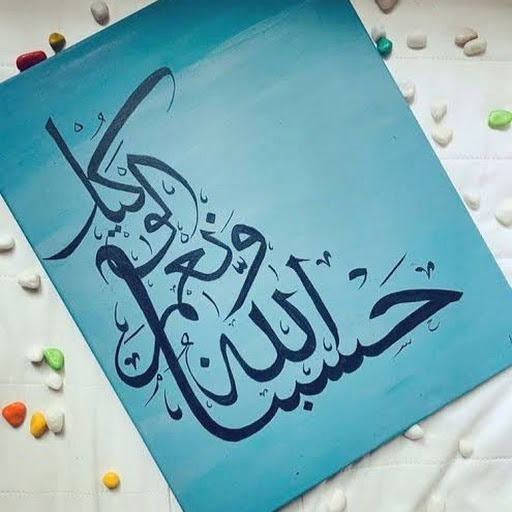 حَسْبُنَا اللهُ
وَنِعْمَ
الْوَكِيْلُ